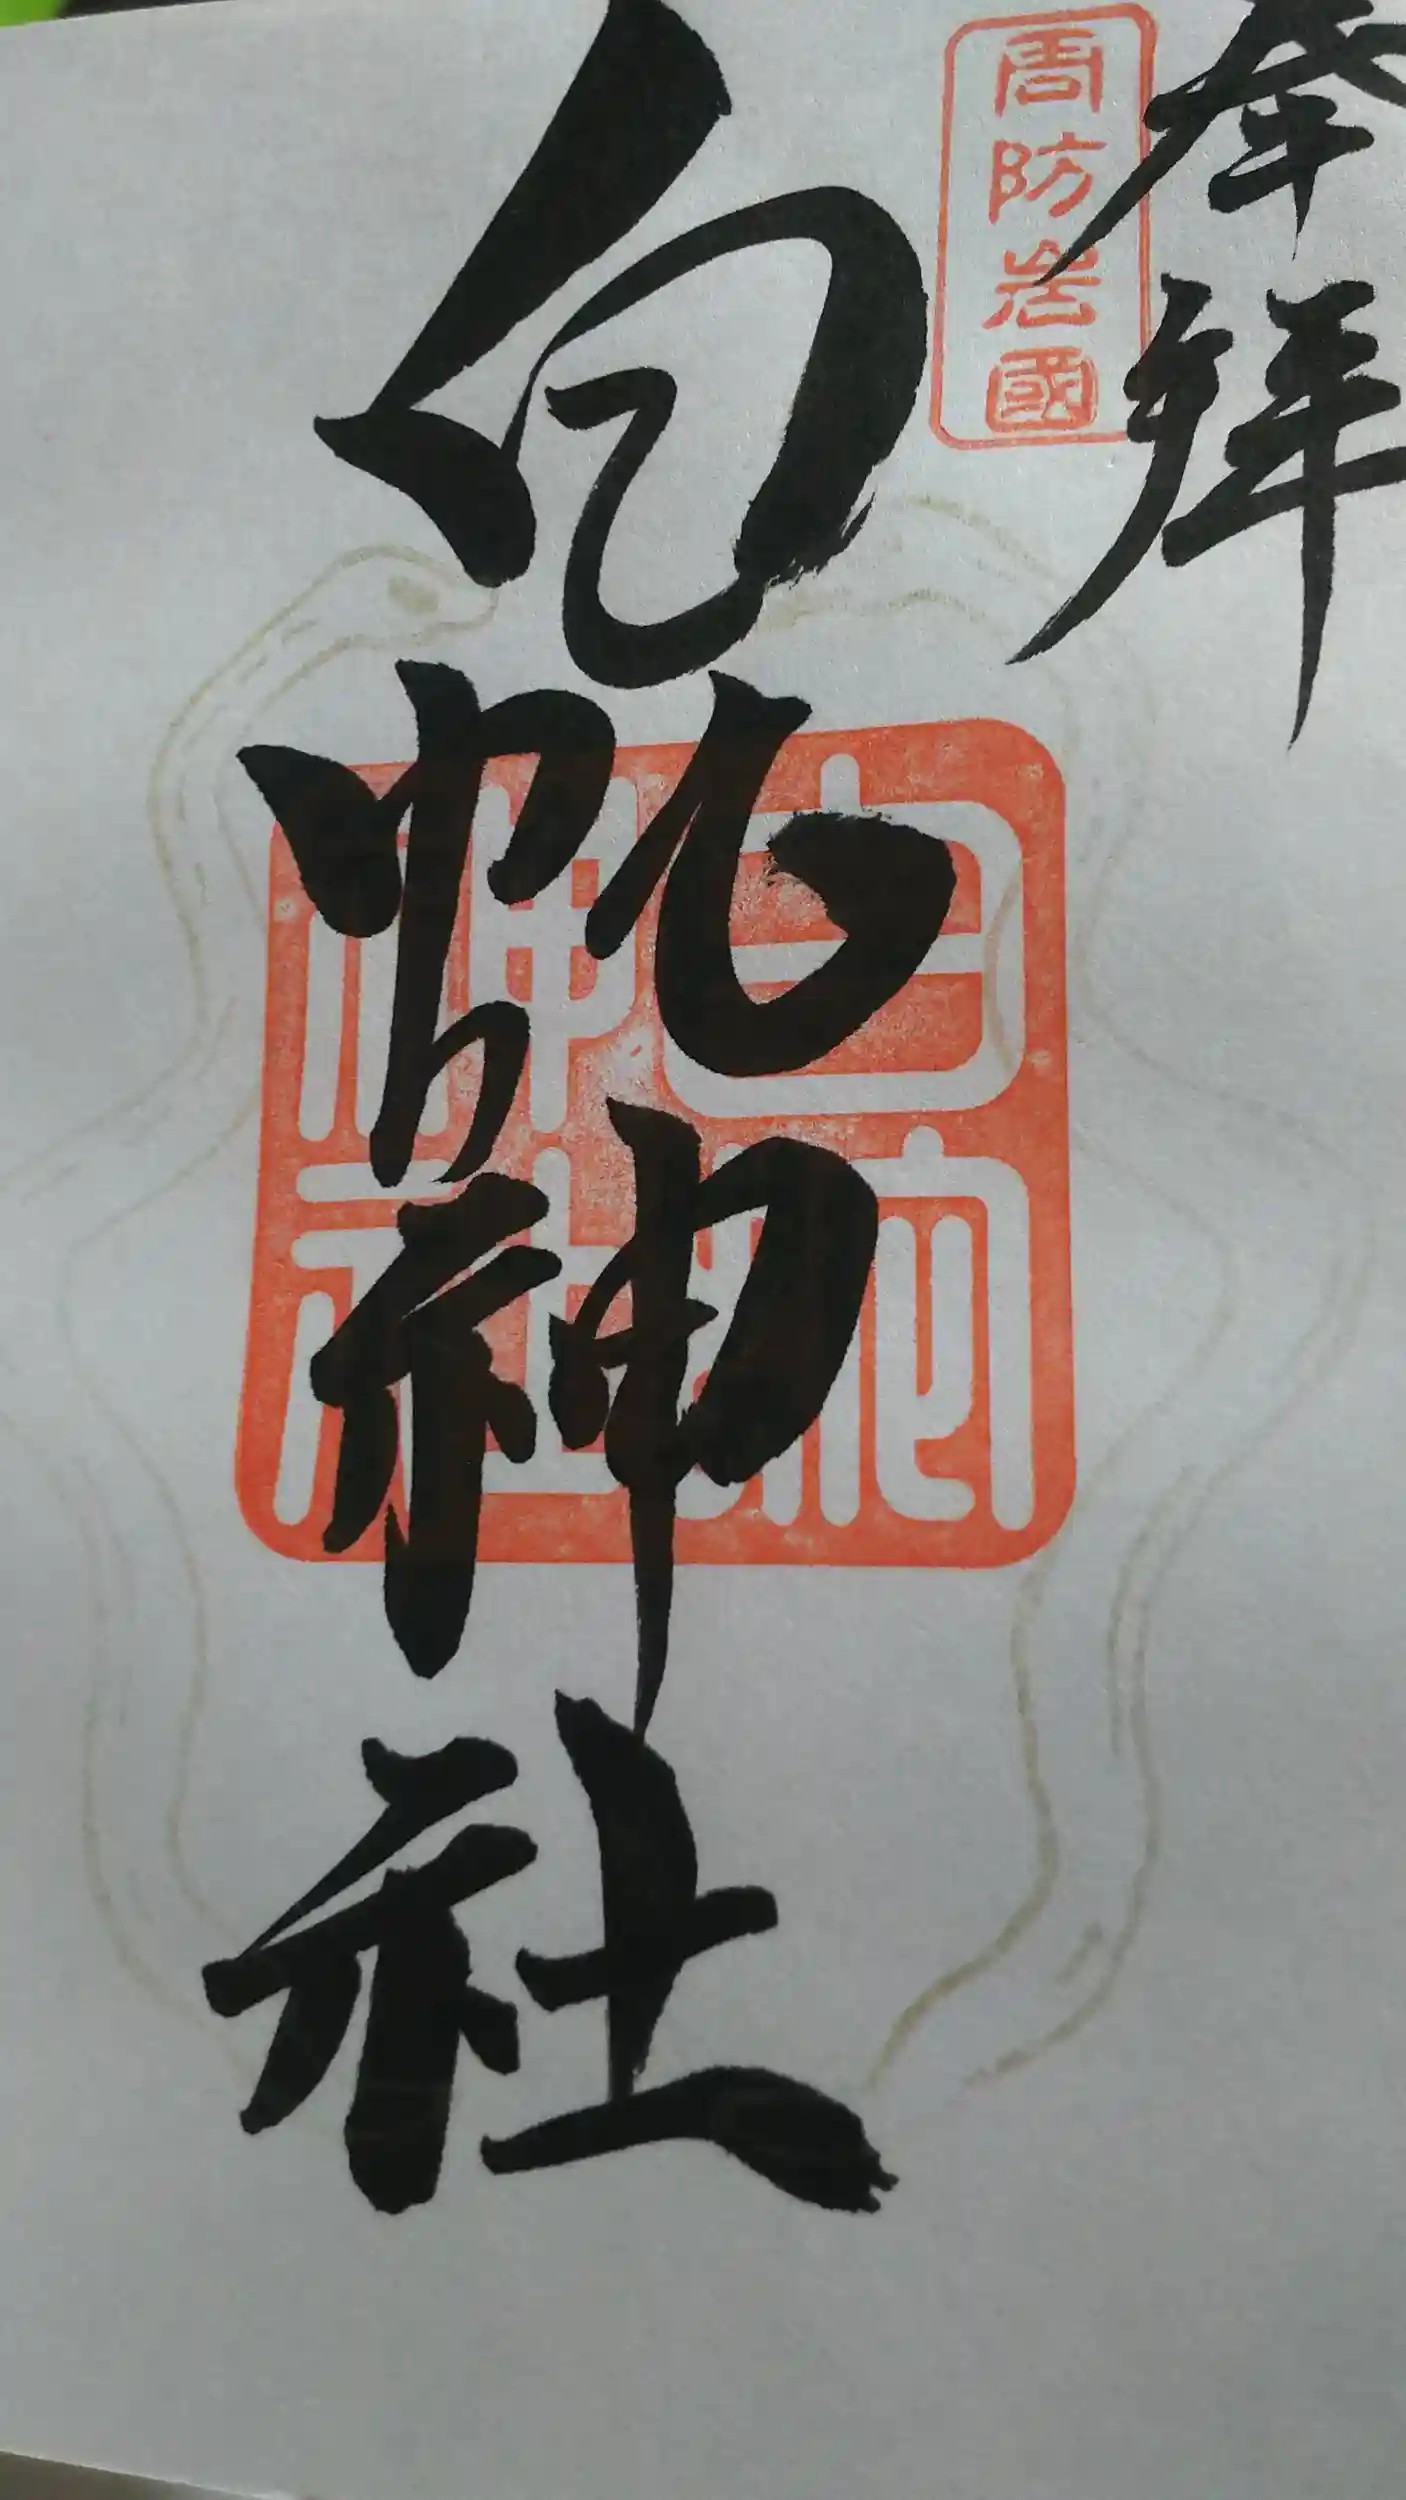 奉拝
周防岩國
白蛇神社
白蛇神社